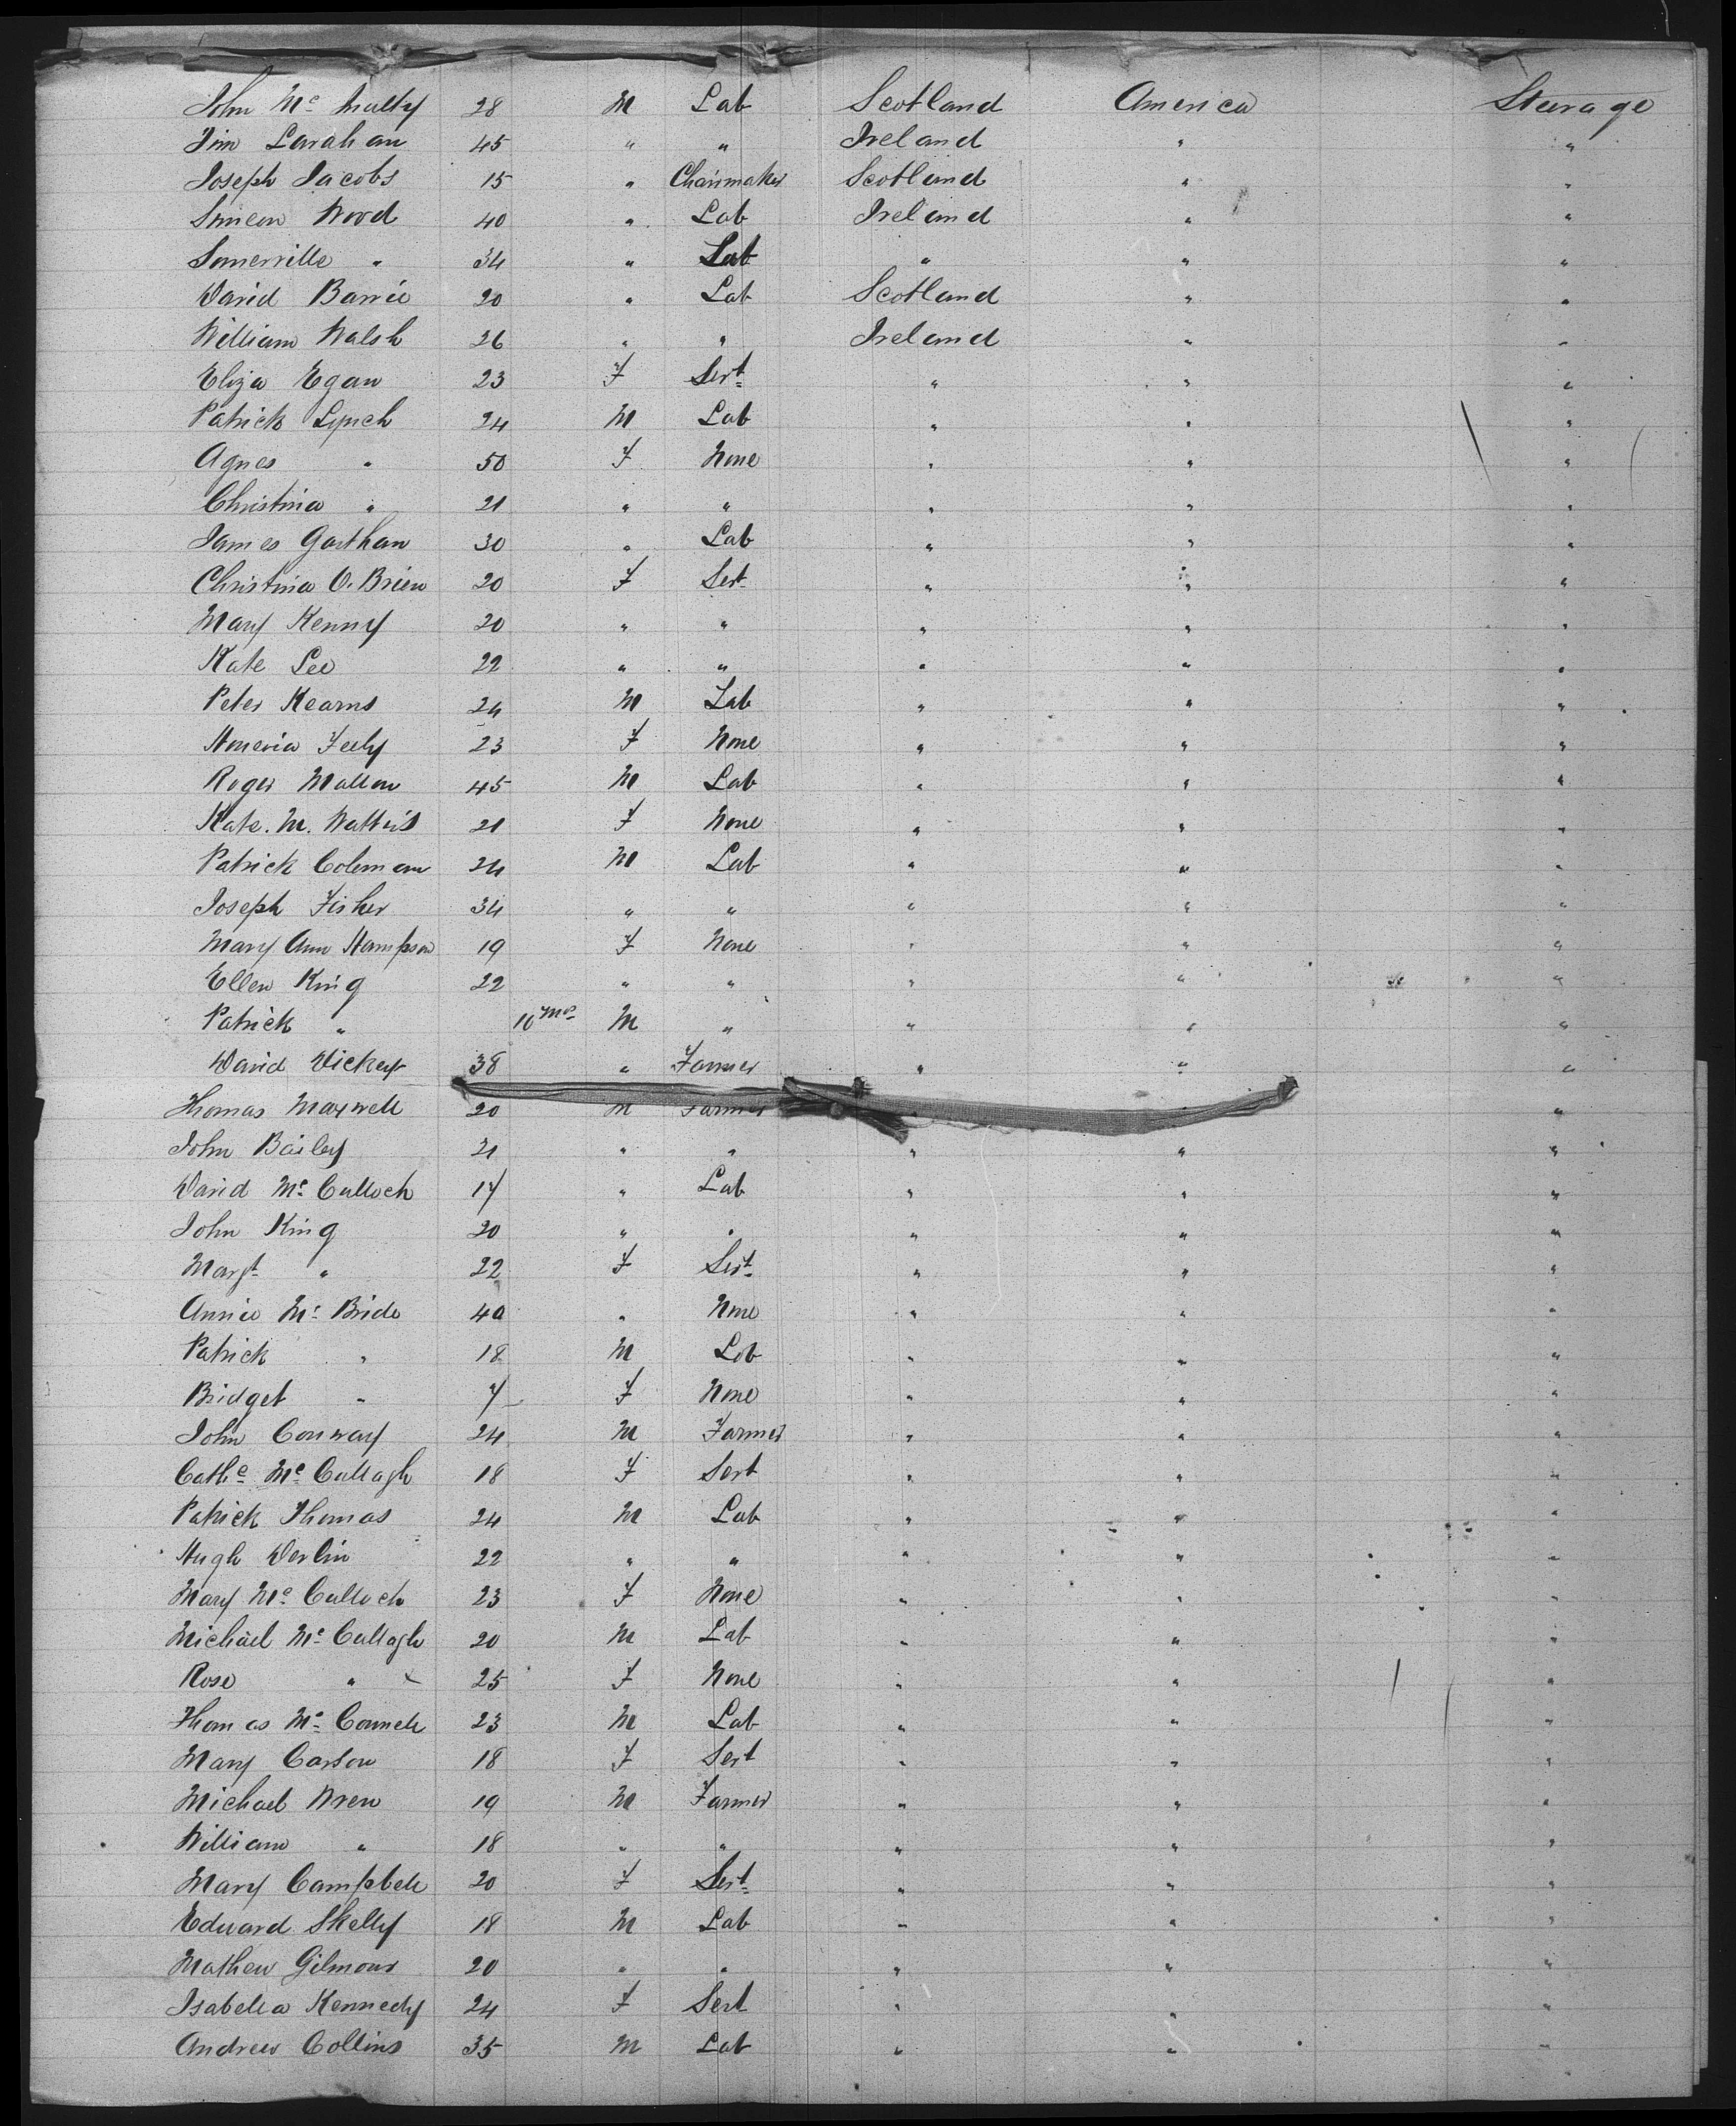 John Mc Nulty 28 M Lab Scotland America Steerage
Tim Lanahan 45 " " Ireland " "
Joseph Jacobs 15 " Chairmaker Scotland " "
Simeon Wood 40 " Lab Ireland " "
Somerville " 34 " Lab " " "
David Barrie 20 " Lab Scotland " "
William Walsh 26 " " Ireland " "
Eliza Egan 23 F Sert " " "
Patrick Lynch 24 M Lab " " "
Agnes " 50 F None " " "
Christina " 21 " " " " "
James Garthan 30 " Lab " " "
Christina O'Brien 20 F Sert " " "
Mary Kenny 20 " " " " "
Kate Lee 22 " " " " "
Peter Kearns 24 M Lab " " "
Honoria Feely 23 F None " " "
Roger Mallon 45 M Lab " " "
Kate. M. 21 F None " " "
Patrick Coleman 24 M Lab " " "
Joseph Fisher 34 " " " " "
Mary Ann Hampson 19 F None " " "
Ellen King 22 " " " " "
Patrick " 10 mos M " " " "
David Dickey 38 " Farmer " " "
Thomas Maxwell 20 M Farmer " "
John Bailey 21 " " " " "
David Mc Culloch 17 " Lab " " "
John King 20 " " " " "
Margt " 22 F Sert " " "
Annie Mc Bride 40 " None " " "
Patrick " 18 M Lab " " "
Bridget " 7 F None " " "
John Conway 24 M Farmer " " "
Cathe Mc Cullagh 18 F Sert " " "
Patrick Thomas 24 M Lab " " "
Hugh Devlin 22 " " " " "
Mary Mc Culloch 23 F None " " "
Michael Mc Cullagh 20 M Lab " " "
Rose " 25 F None " " "
Thomas Mc Connell 23 M Lab " " "
Mary Carson 18 F Sert " " "
Michael Wren 19 M Farmer " " "
William " 18 " " " " "
Mary Campbell 20 F Sert " " "
Edward Skelly 18 M Lab " " "
Mathew Gilmour 20 " " " " "
Isabella Kennedy 24 F Sert " " "
Andrew Collins 35 M Lab " " "